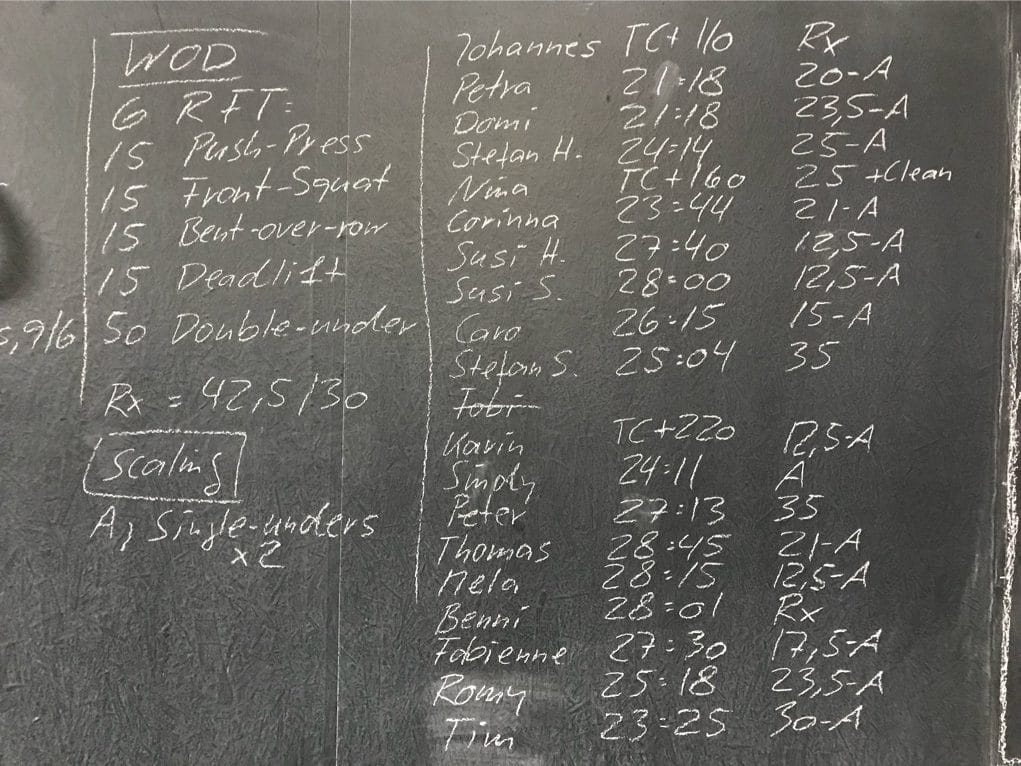 WOD
6 RFT:
15 Push-Press
15 Front-Squat
15 Bent-over-row
15 Deadlift
5,9/6
50 Double-under
Rx = 42,5/30
Scaling
A) Single-unders
x2
Johannes TC+110 Rx
Petra 21:18 20-A
Domi 21:18 23,5-A
Stefan H. 24:14 25-A
Nina TC+160 25 +Clean
Corinna 23:44 21-A
Susi H. 27:40 12,5-A
Susi S. 28:00 12,5-A
Caro 26:15 15-A
Stefan S. 25:04 35
Tobi
Karin TC+220 12,5-A
24:11 A
Peter 27:13 35
Thomas 28:45 21-A
Nela 28:15 12,5-A
Benni 28:01 Rx
Fabienne 27:30 17,5-A
Romy 25:18 23,5-A
Tim 23:25 30-A